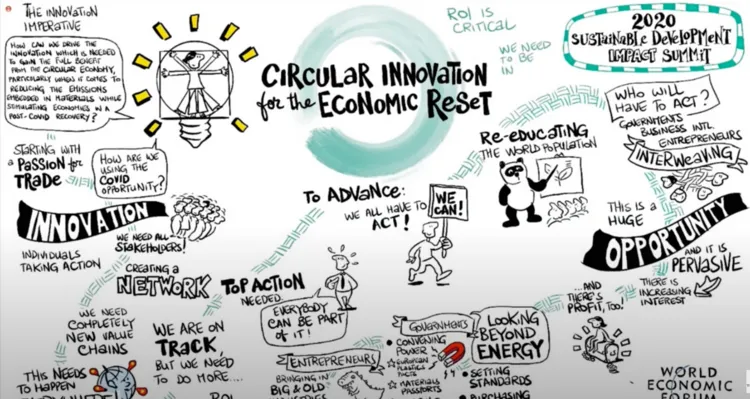 THE INNOVATION
IMPERATIVE
HOW CAN WE DRIVE THE
INNOVATION WHICH IS NEEDED
TO GAIN THE FULL BENEFIT
FROM THE CIRCULAR ECONOMY,
PARTICULARLY WHEN IT COMES TO
REDUCING THE EMISSIONS
EMBEDDED IN MATERIALS WHILE
STIMULATING ECONOMIES IN A
POST-COVID RECOVERY?
CIRCULAR INNOVATION
for the ECONOMIC RESET
ROI IS
CRITICAL
WE NEED
TO BE
IN
2020
SUSTAINABLE DEVELOPMENT
IMPACT SUMMIT
STARTING WITH
a PASSION for
TRADE
HOW ARE WE
USING THE
COVID
OPPORTUNITY?
INNOVATION
WE NEED ALL
STAKEHOLDERS!
INDIVIDUALS
TAKING ACTION
CREATING A
NETWORK
TO ADVANCE:
WE ALL HAVE TO
ACT!
WE
CAN!
RE-EDUCATING
THE WORLD POPULATION
WHO WILL
HAVE TO ACT?
GOVERNMENTS
BUSINESS INTL.
ENTREPRENEURS
INTERWEAVING
THIS IS A
HUGE
OPPORTUNITY
AND IT IS
PERVASIVE
THERE IS
INCREASING
INTEREST
...AND
THERE'S
PROFIT, TOO!
TOP ACTION
NEEDED:
EVERYBODY
CAN BE PART
OF IT!
WE NEED
COMPLETELY
NEW VALUE
CHAINS
THIS NEEDS
TO HAPPEN
WE ARE ON
TRACK
BUT WE NEED
TO DO MORE....
ROI
ENTREPRENEURS
BRINGING IN
BIG & OLD
GOVERNMENTS
CONVENING
POWER
EUROPEAN
PLASTICS
PACTS
MATERIALS
PASSPORTS
LOOKING
BEYOND
ENERGY
SETTING
STANDARDS
PURCHASING
WORLD
ECONOMIC
FORUM